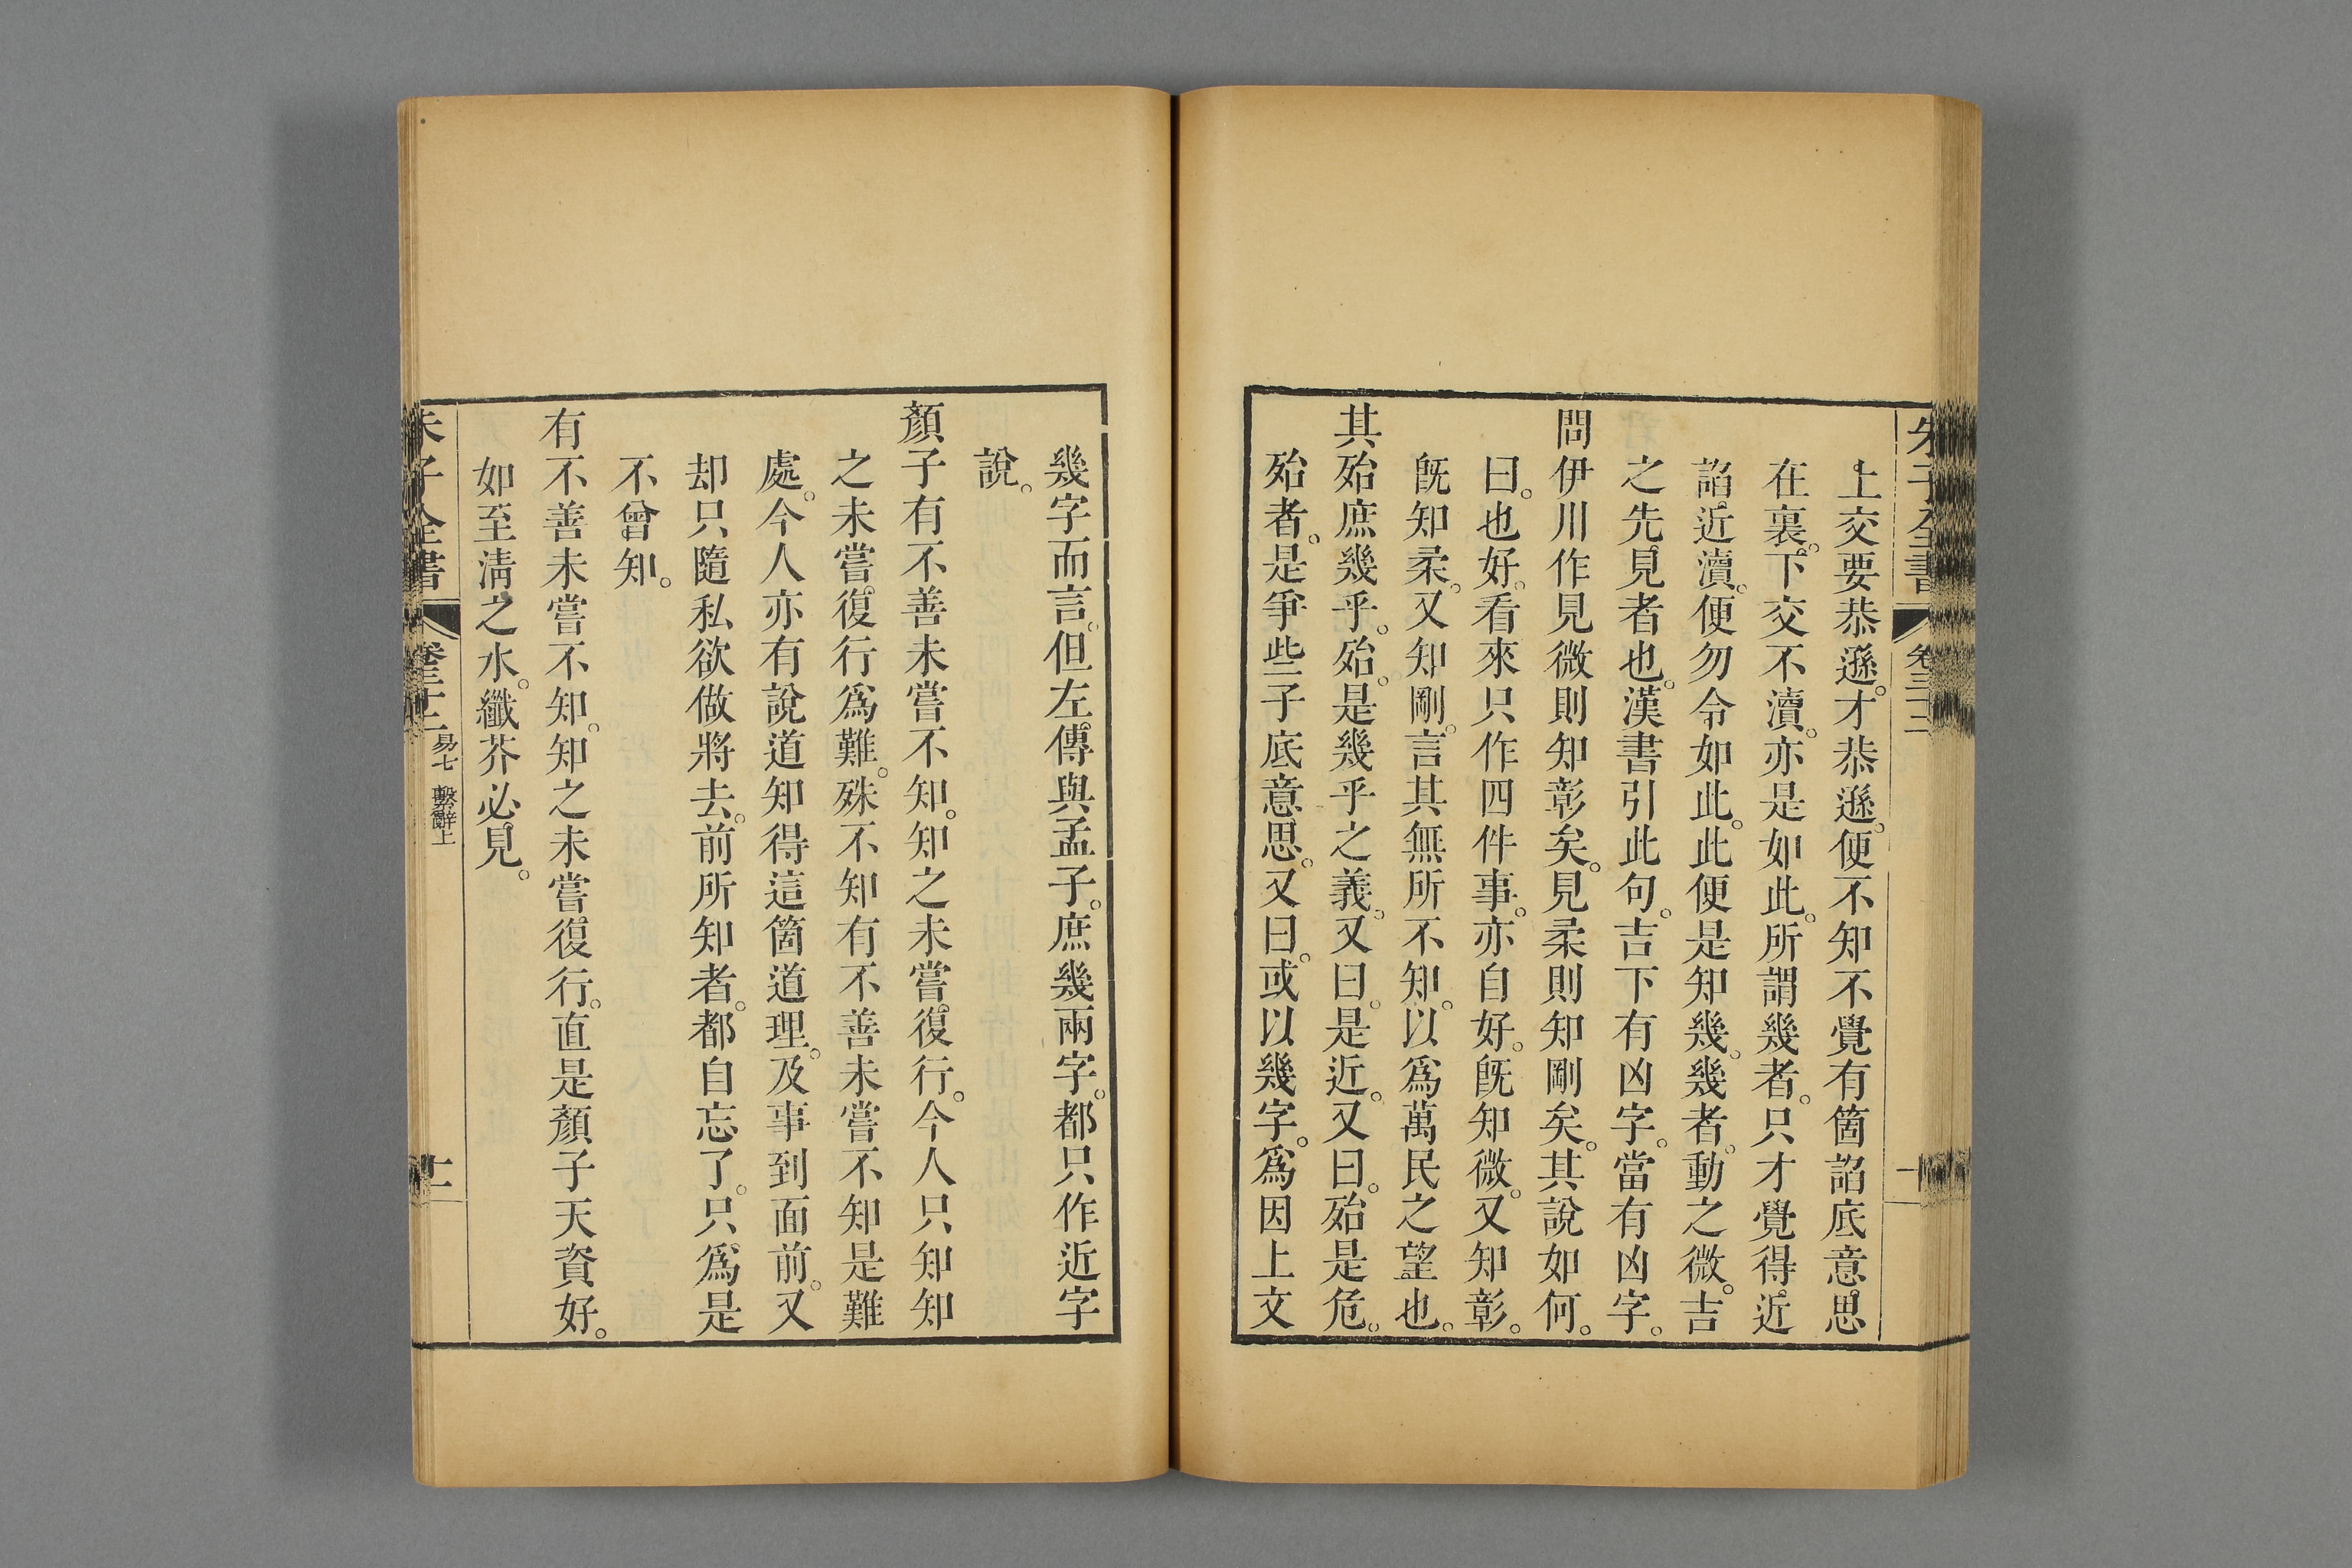 上交要恭遜。才恭遜。便不知不覺有箇諂底意思
在裏。下交不瀆。亦是如此。所謂幾者。只才覺得近
諂。近瀆。便勿令如此。此便是知幾。幾者。動之微。吉
之先見者也。漢書引此句。吉下有凶字。當有凶字。
問伊川作見微則知彰矣。見柔則知剛矣。其說如何。
曰。也好。看來只作四件事。亦自好。旣知微。又知彰。
旣知柔。又知剛。言其無所不知。以爲萬民之望也。
其殆庶幾乎。殆。是幾乎之義。又曰。是近。又曰。殆是危。
殆者。是爭些子底意思。又曰。或以幾字。爲因上文
幾字而言。但左傳與孟子。庶幾兩字。都只作近字
說。
顏子有不善未嘗不知。知之未嘗復行。今人只知知
之未嘗復行爲難。殊不知有不善未嘗不知是難
處。今人亦有說道知得這箇道理。及事到面前。又
却只隨私欲做將去。前所知者。都自忘了。只爲是
不曾知。
有不善未嘗不知。知之未嘗復行。直是顏子天資好。
如至淸之水。纖芥必見。
朱子全書 卷三十二 易七 繫辭上 十一